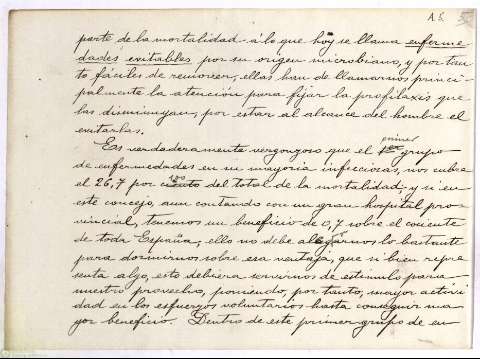 A5
parte de la mortalidad a lo que hoy se llama enferme
dades evitables por su origen microbiano, y por tan
to fáciles de remover, ellas han de llamarnos princi-
palmente la atención para fijar la profilaxis que
las disminuyan, por estar al alcance del hombre el
evitarlas.
Es verdaderamente vergonzoso que el primer grupo
de enfermedades en su mayoria infecciosas, nos cubra
el 26,7 por del total de la mortalidad, y si en
este concejo, aun contando con un gran hospital pro-
vincial, tenemos un beneficio de 0,7 sobre el cociente
de toda España, ello no debe alegrarnos lo bastante
para dormirnos sobre esa ventaja, que si bien repre
senta algo, esto debiera servirnos de estimulo para
nuestro provecho, poniendo, por tanto, mayor activi
dad en los esfuerzos voluntarios hasta conseguir ma
yor beneficio. Dentro de este primer grupo de en